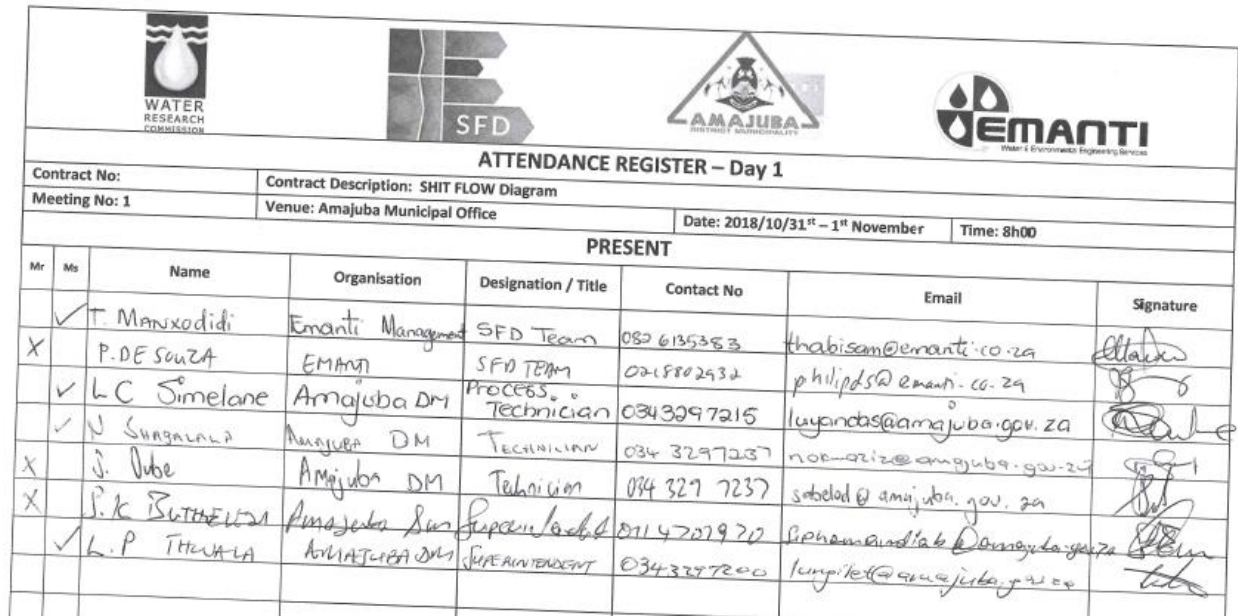 WATER
RESEARCH
COMMISSION
SFD
AMAJUBA
DISTRICT MUNICIPALITY
EMANTI
Water & Environmental Engineering Services
ATTENDANCE REGISTER – Day 1
Contract No: Contract Description: SHIT FLOW Diagram
Meeting No: 1 Venue: Amajuba Municipal Office Date: 2018/10/31st – 1st November Time: 8h00
PRESENT
Mr Ms Name Organisation Designation / Title Contact No Email Signature
T. Manxodidi Emanti Management SFD Team 082 6135383 thabisam@emanti.co.za
X P. DE SOUZA EMANTI SFD TEAM 0218802932 philipds@emanti.co.za
L C Simelane Amajuba DM Process Technician 0343297215 luyandas@amajuba.gov.za
N SHABALALA AMAJUBA DM TECHNICIAN 034 3297237
X S. Dube Amajuba DM Technician 034 329 7237 sabelod@amajuba.gov.za
X S. K BUTHELEZI Amajuba
L.P THWALA AMAJUBA DM SUPERINTENDENT 0343297200